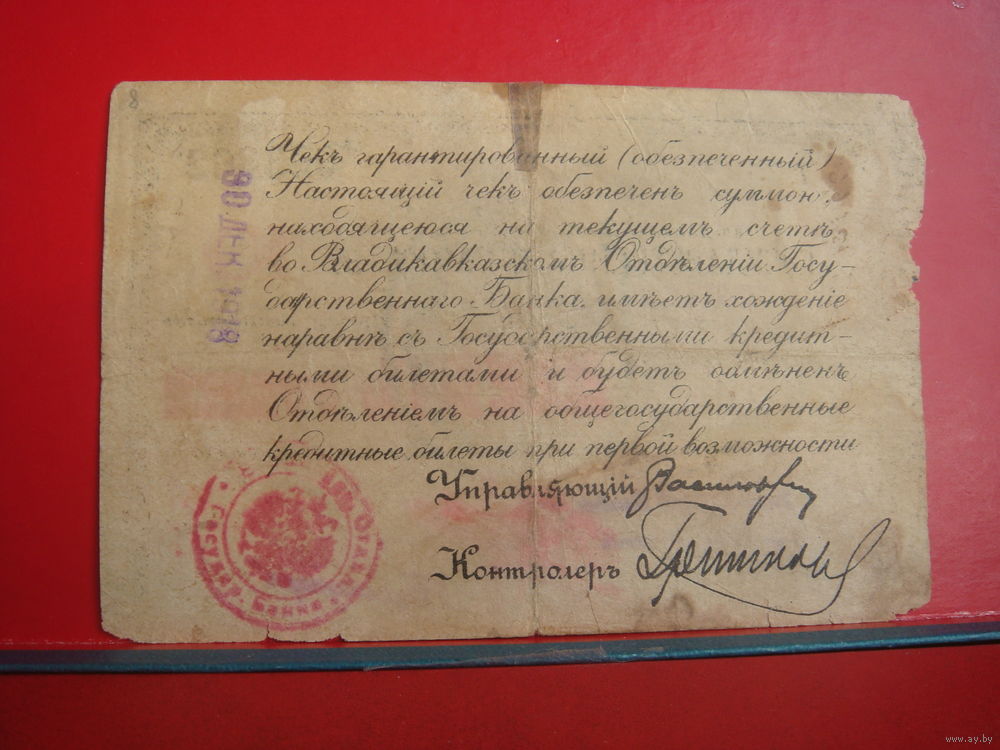 8
Чекъ гарантированный (обезпеченный)
Настоящій чекъ обезпеченъ суммой,
находящеюся на текущемъ счетѣ
во Владикавказскомъ Отдѣленіи Госу-
дарственнаго Банка. имѣетъ хожденіе
наравнѣ съ Государственными кредит-
ными билетами и будетъ обмѣненъ
Отдѣленіемъ на общегосударственные
кредитные билеты при первой возможности
Управляющій
Контролеръ
ДЕК 1918
Государ. Банка
www.ay.by